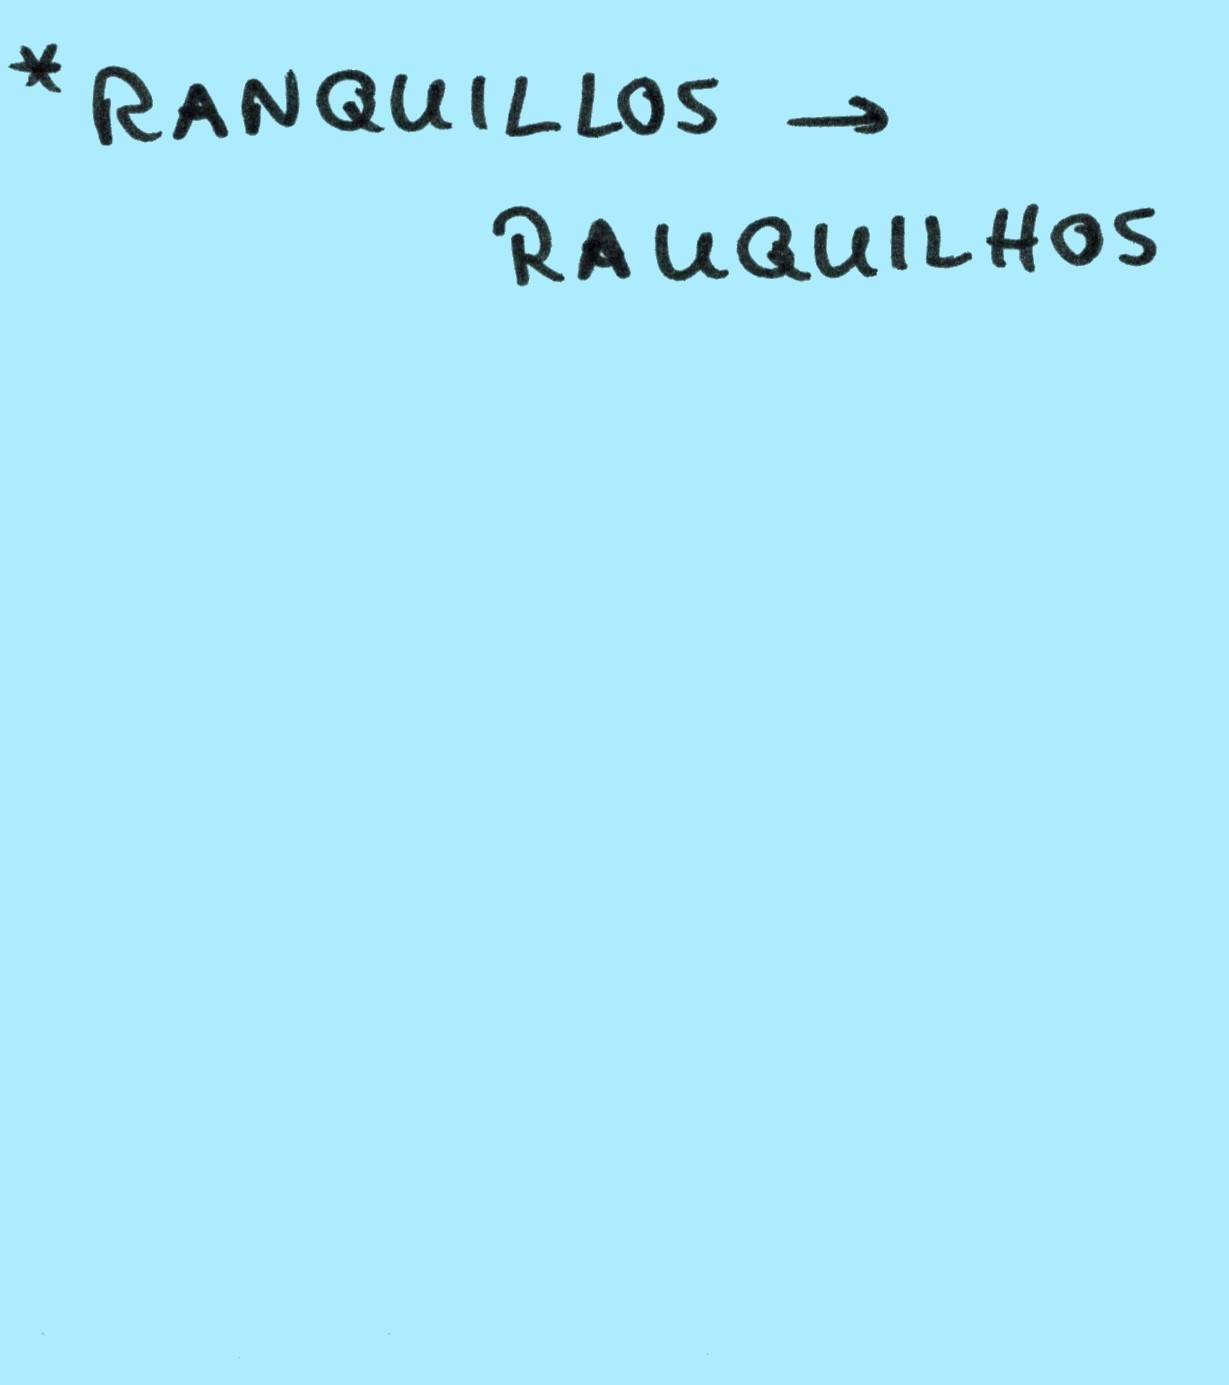 *RANQUILLOS →
RAUQUILHOS